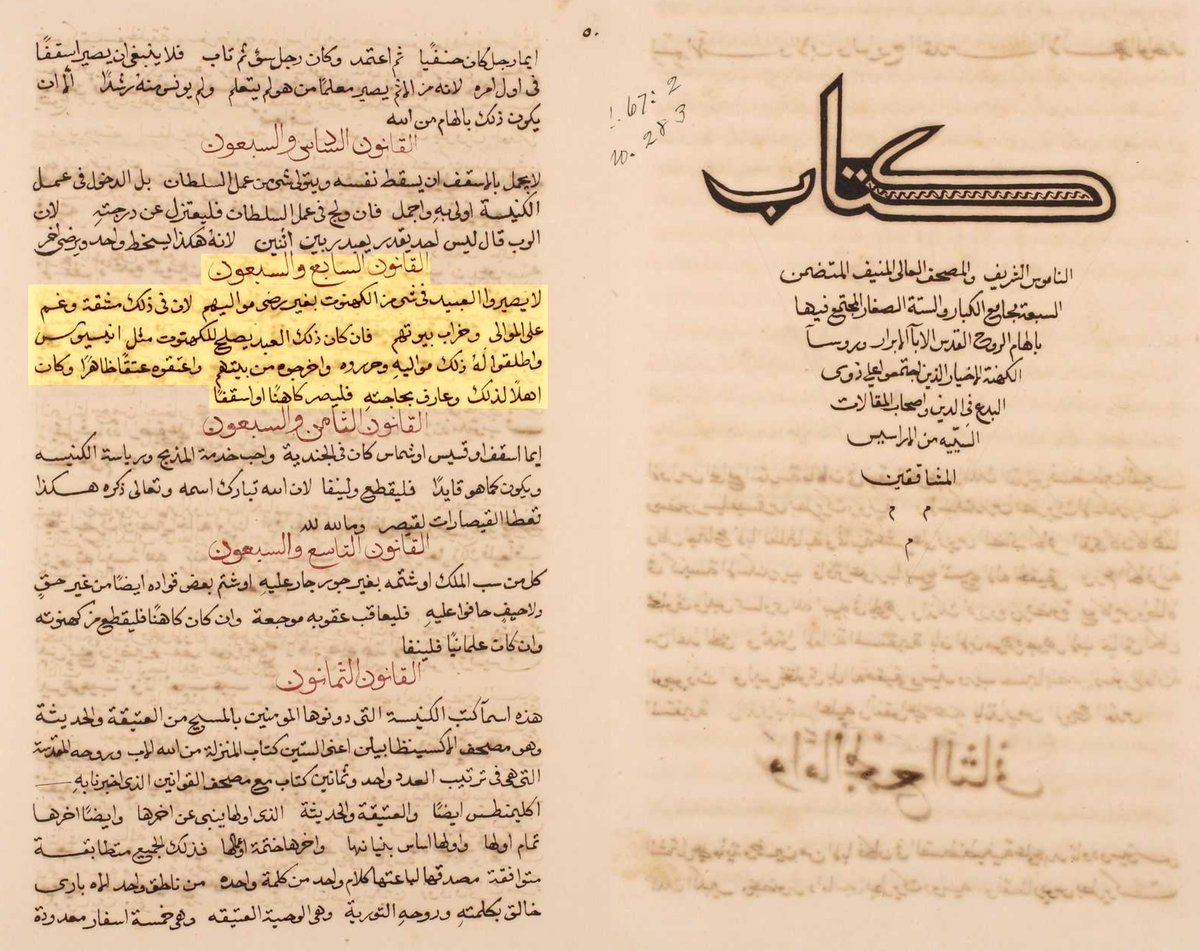 ٥٠
ايما رجل كان حنفيًا ثم اعتمد وكان رجل سوٍ ثم تاب فلا ينبغي ان يصير اسقفًا
في اول امره لانه من الاثم يصير معلمًا من هو لم يتعلم ولم يونس منه رشدًا الا ان
يكون ذلك بالهام من الله
القانون السادس والسبعون
لا يجمل بالاسقف ان يسقط نفسه ويتولى شي من عمل السلطان بل الدخول في عمل
الكنيسة اولى به واجمل فان ولج في عمل السلطان فليعتزل عن درجته لان
الرب قال ليس احد يقدر يعبد ربين اثنين لانه هكذا يسخط واحد ويرضى اخر
القانون السابع والسبعون
لا يصيروا العبيد في شي من الكهنوت بغير رضى مواليهم لان في ذلك مشقة وغم
على الموالى وخراب بيوتهم فان كان ذلك العبد يصلح للكهنوت مثل انيسيموس
واطلقوا له ذلك مواليه وحرروه واخرجوه من بيتهم واعتقوه عتقًا ظاهرًا وكان
اهلًا لذلك وعارف بحاجته فليصر كاهنًا او اسقفًا
القانون الثامن والسبعون
ايما اسقف او قسيس او شماس كان في الجندية واحب خدمة المذبح ورياسة الكنيسه
ويكون كما هو قايدًا فليقطع ولينفا لان الله تبارك اسمه وتعالى ذكره هكذا
تعطا القيصارات لقيصر وما لله لله
القانون التاسع والسبعون
كل من سب الملك او شتمه بغير جور جار عليه او شتم بعض قواده ايضًا من غير حقٍ
ولا حيفٍ حافوا عليه فليعاقب عقوبه موجعة وان كان كاهنًا فليقطع من كهنوته
وان كان علمانيًا فلينفا
القانون الثمانون
هذه اسمآ كتب الكنيسة التى دونوها المومنين بالمسيح من العتيقة والحديثة
وهو مصحف اعنى الستين كتاب المنزلة من الله الاب وروحه المقدسة
التى هي في ترتيب العدد واحد وثمانين كتاب مع مصحف القوانين الذى اخبرنا به
اكليمنطس ايضًا والعتيقة والحديثة الذى اولها ينبى عن اخرها وايضًا اخرها
تمام اولها واولها اساس بنيانها واخرها ختمة اولها فذلك الجميع متطابقة
متوافقة مصدقها لباعتها كلام واحد من كلمة واحده من ناطق واحد اله بارى
خالق بكلمته وروحه التورية وهى الوصية العتيقه وهى خمسة اسفار معدودة
1. 67: 2
w. 283
كتاب
الناموس الشريف والمصحف العالى المنيف المتضمن
السبعة مجامع الكبار والستة الصغار المجتمع فيها
بالهام الروح القدس الابآ الابرار وروسآ
الكهنة الاخيار الذين اجتمعوا على ذوى
البدع في الدين واصحاب المقالات
السيه من المراسيس
المشاققين
م م
م
واما المجمع الثانى